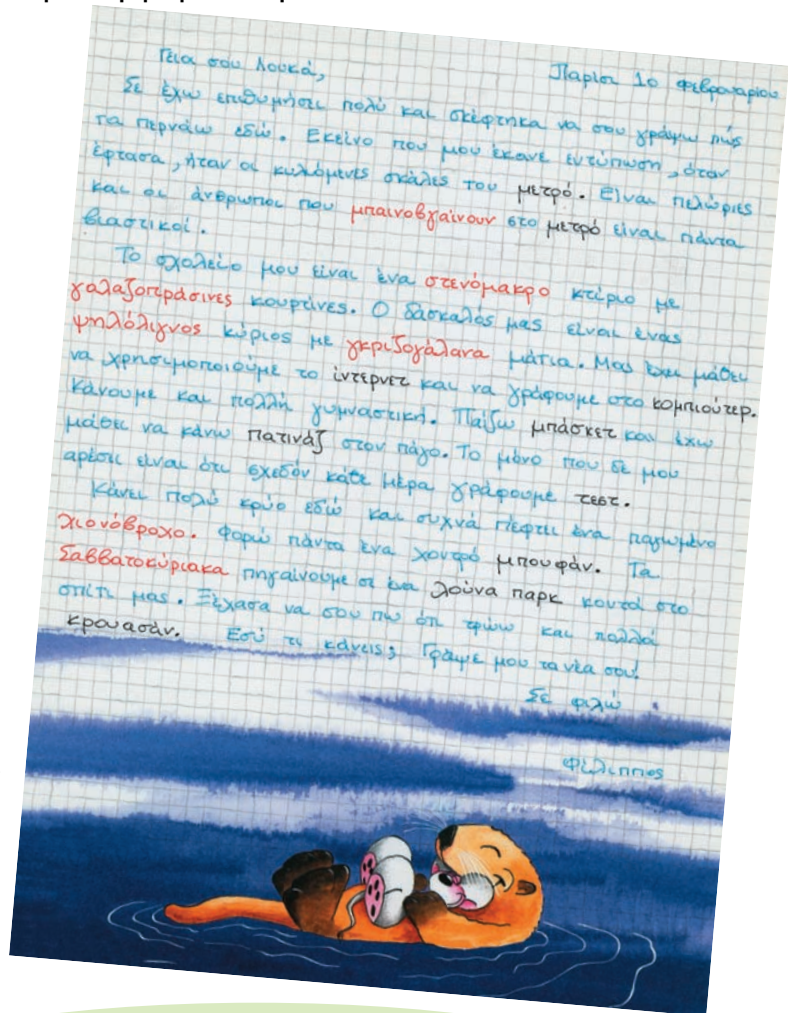 Γεια σου Λουκά,
Παρίσι 10 Φεβρουαρίου
Σε έχω επιθυμήσει πολύ και σκέφτηκα να σου γράψω πώς
τα περνάω εδώ. Εκείνο που μου έκανε εντύπωση, όταν
έφτασα, ήταν οι κυλιόμενες σκάλες του μετρό. Είναι πελώριες
και οι άνθρωποι που μπαινοβγαίνουν στο μετρό είναι πάντα
βιαστικοί.
Το σχολείο μου είναι ένα στενόμακρο κτίριο με
γαλαζοπράσινες κουρτίνες. Ο δάσκαλός μας είναι ένας
ψηλόλιγνος κύριος με γκριζογάλανα μάτια. Μας έχει μάθει
να χρησιμοποιούμε το ίντερνετ και να γράφουμε στο κομπιούτερ.
Κάνουμε και πολλή γυμναστική. Παίζω μπάσκετ και έχω
μάθει να κάνω πατινάζ στον πάγο. Το μόνο που δε μου
αρέσει είναι ότι σχεδόν κάθε μέρα γράφουμε τεστ.
Κάνει πολύ κρύο εδώ και συχνά πέφτει ένα παγωμένο
χιονόβροχο. Φορώ πάντα ένα χοντρό μπουφάν. Τα
Σαββατοκύριακα πηγαίνουμε σε ένα λούνα παρκ κοντά στο
σπίτι μας. Ξέχασα να σου πω ότι τρώω και πολλά
κρουασάν. Εσύ τι κάνεις; Γράψε μου τα νέα σου!
Σε φιλώ
Φίλιππος